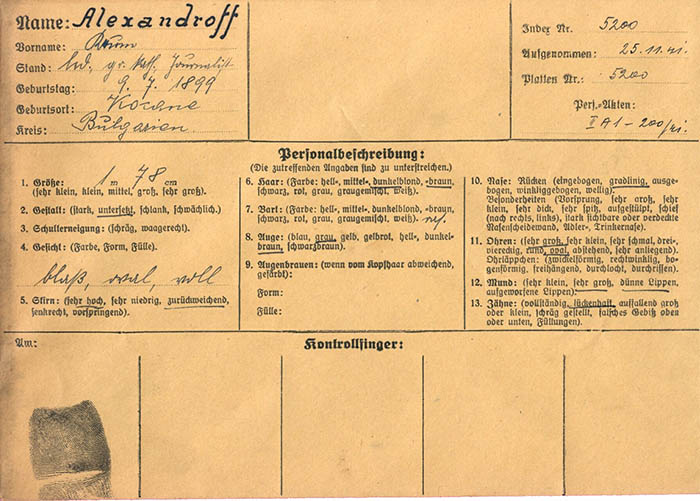 Name: Alexandroff
Vorname: Krum
Stand: led. gr. kath. Journalist
Geburtstag: 9. 7. 1899
Geburtsort: Kocane
Kreis: Bulgarien
Index Nr. 5200
Aufgenommen: 25.11.41
Platten Nr.: 5200
Pers.-Akten:
II A1 - 200/41.
Personalbeschreibung:
(Die zutreffenden Angaben sind zu unterstreichen.)
1. Größe: 1 m 78 cm
(sehr klein, klein, mittel, groß, sehr groß).
2. Gestalt: (stark, untersetzt, schlank, schwächlich.)
3. Schulterneigung: (schräg, waagerecht.)
4. Gesicht: (Farbe, Form, Fülle).
blaß, oval, voll
5. Stirn: (sehr hoch, sehr niedrig, zurückweichend,
senkrecht, vorspringend).
6. Haar: (Farbe: hell-, mittel-, dunkelblond, -braun,
schwarz, rot, grau, graugemischt, weiß).
7. Bart: (Farbe: hell-, mittel-, dunkelblond, -braun,
schwarz, rot, grau, graugemischt, weiß).
8. Auge: (blau, grau, gelb, gelbrot, hell-, dunkel-
braun, schwarzbraun).
9. Augenbrauen: (wenn vom Kopfhaar abweichend,
gefärbt):
Form:
Fülle:
10. Nase: Rücken (eingebogen, gradlinig, ausge-
bogen, winkliggebogen, wellig):
Besonderheiten (Vorsprung, sehr groß, sehr
klein, sehr dick, sehr spitz, aufgestülpt, schief
(nach rechts, links), stark sichtbare oder verdeckte
Nasenscheidewand, Adler-, Trinkernase).
11. Ohren: (sehr groß, sehr klein, sehr schmal, drei-
viereckig, rund, oval, abstehend, sehr anliegend).
Ohrläppchen: (zwickelförmig, rechtwinklig, bo-
genförmig, freihängend, durchlocht, durchrissen).
12. Mund: (sehr klein, sehr groß, dünne Lippen,
aufgeworfene Lippen):
13. Zähne: (vollständig, lückenhaft, auffallend groß
oder klein, schräg gestellt, falsches Gebiß oben
oder unten, Füllungen).
Am:
Kontrollfinger: